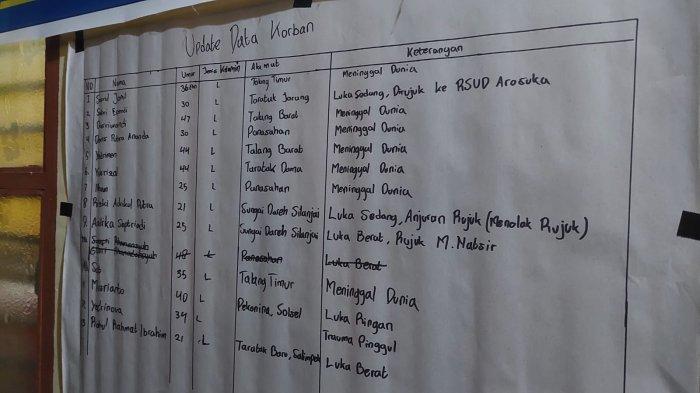 Update Data Korban
NO Nama Umur Jenis Kelamin Alamat Keterangan
1 Jamil 36 thn L Talang Timur Meninggal Dunia
2 Safri 30 L Taratak Jarang Luka Sedang, Dirujuk ke RSUD Arosuka
3 47 L Talang Barat Meninggal Dunia
4 Doris Putra Ananda 30 L Panasahan Meninggal Dunia
5 44 L Talang Barat Meninggal Dunia
6 Yusrizal 44 L Taratak Dama Meninggal Dunia
7 25 L Panasahan Meninggal Dunia
8 Putra 21 L Sungai Dareh Silanjai Luka Sedang, Anjuran Rujuk (Menolak Rujuk)
9 Andika Septriadi 25 L Sungai Dareh Silanjai Luka Berat, Rujuk M.Natsir
48 L Panasahan Luka Berat
35 L Talang Timur Meninggal Dunia
Marianto 40 L Luka Ringan
2 34 L Trauma Pinggul
3 Rahmat Ibrahim 21 L Taratak Baru, Luka Berat